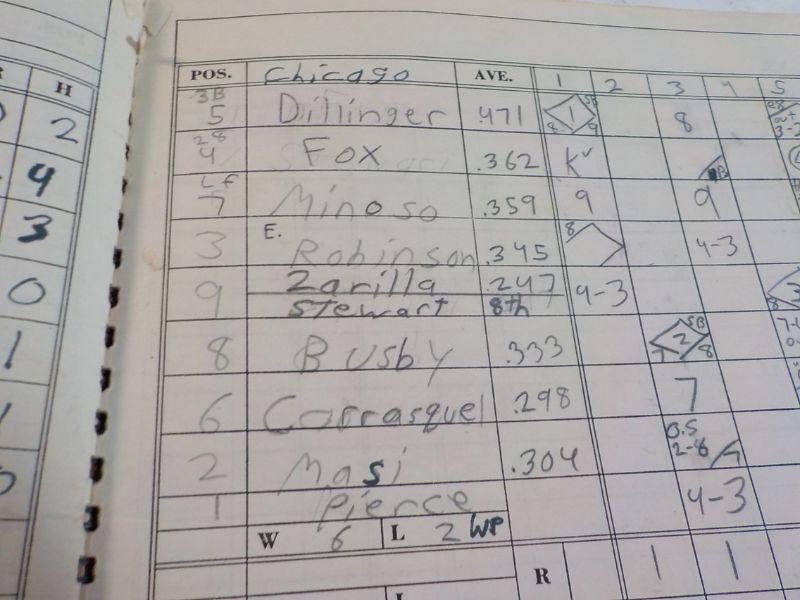 H
2
4
3
0
1
1
0
POS. Chicago AVE. 1 2 3 4 5
3B
5 Dillinger .471 1 SB 8 9 8
2B
4 Fox .362 K
LF
7 Minoso .359 9 9
3 E. Robinson .345 8 4-3
9 Zarilla .247 9-3
Stewart 8th
8 Busby .333 2 SB 7 8
6 Carrasquel .298 7
2 Masi .304 2-8
1 Pierce 4-3
W 6 L 2 WP
R 1 1